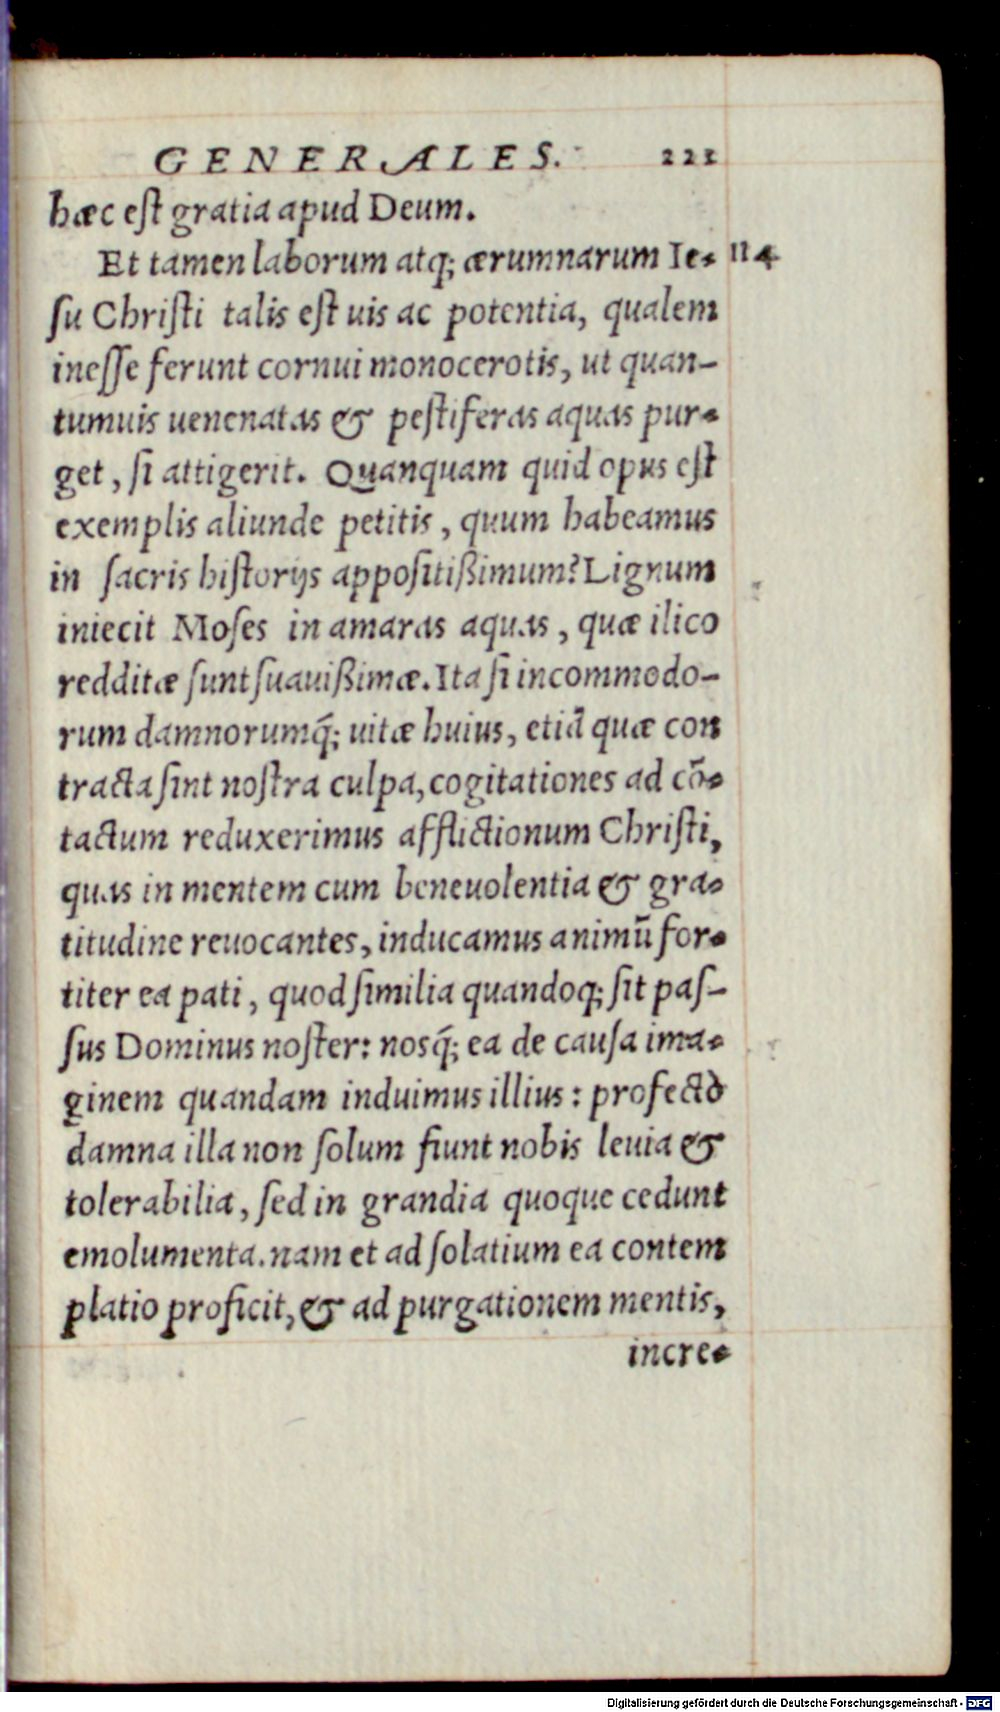 GENERALES. 221
hæc eſt gratia apud Deum.
Et tamen laborum atq; ærumnarum Ie- 114
ſu Chriſti talis eſt uis ac potentia, qualem
ineſſe ferunt cornui monocerotis, ut quan-
tumuis uenenatas & peſtiferas aquas pur-
get, ſi attigerit. Quanquam quid opus eſt
exemplis aliunde petitis, quum habeamus
in ſacris hiſtorijs appoſitißimum? Lignum
iniecit Moſes in amaras aquas, quæ ilico
redditæ ſunt ſuauißimæ. Ita ſi incommodo-
rum damnorumq́; uitæ huius, etiã quæ con
tracta ſint noſtra culpa, cogitationes ad cõ-
tactum reduxerimus afflictionum Chriſti,
quas in mentem cum beneuolentia & gra-
titudine reuocantes, inducamus animũ for-
titer ea pati, quod ſimilia quandoq; ſit paſ-
ſus Dominus noſter: nosq́; ea de cauſa ima-
ginem quandam induimus illius: profectò
damna illa non ſolum fiunt nobis leuia &
tolerabilia, ſed in grandia quoque cedunt
emolumenta. nam et ad ſolatium ea contem
platio proficit, & ad purgationem mentis,
incre-
Digitalisierung gefördert durch die Deutsche Forschungsgemeinschaft - DFG